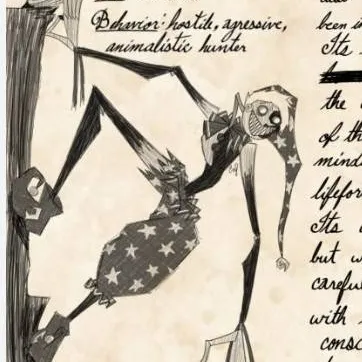 Behavior: hostile, agressive,
animalistic hunter
been i
Its
the
of th
minds
lifefor
Its
but w
careful
with
consc